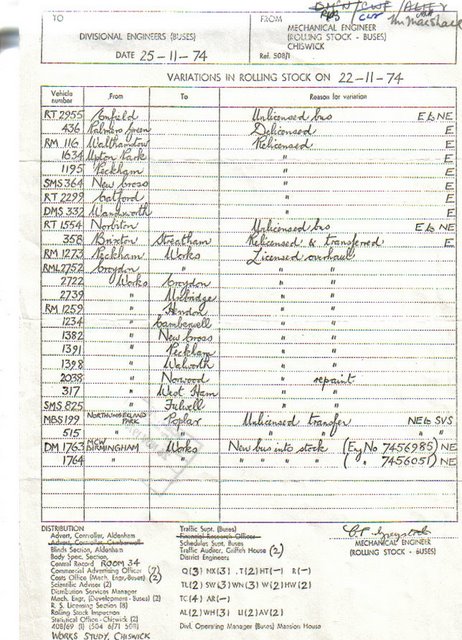 TO
DIVISIONAL ENGINEERS (BUSES)
DATE 25-11-74
FROM
MECHANICAL ENGINEER
(ROLLING STOCK - BUSES)
CHISWICK
Ref. 508/1
VARIATIONS IN ROLLING STOCK ON 22-11-74
Vehicle number From To Reason for variation
RT 2955 Enfield Unlicensed bus E to NE
436 Palmers Green Delicensed E
RM 116 Walthamstow Relicensed E
1634 Upton Park " E
1195 Peckham " E
SMS 364 New Cross " E
RT 2299 Catford " E
DMS 332 Wandsworth " E
RT 1554 Norbiton Unlicensed bus E to NE
358 Brixton Streatham Relicensed & transferred E
RM 1273 Peckham Works Licensed overhaul
RML 2752 Croydon " " "
2722 Works Croydon " "
2739 " Uxbridge " "
RM 1259 " Hendon " "
1234 " Camberwell " "
1382 " New Cross " "
1391 " Peckham " "
1398 " Walworth " "
2038 " Norwood " repaint
317 " West Ham " "
SMS 825 " Fulwell " "
MBS 199 NORTHUMBERLAND PARK Poplar Unlicensed transfer NE to SVS
515 " " " " " "
DM 1763 MCW BIRMINGHAM Works New bus into stock (Eng No 7456985) NE
1764 " " " " " ( " 7456051) NE
DISTRIBUTION
Advert. Controller, Aldenham
Advert. Controller, Camberwell
Blinds Section, Aldenham
Body Spec. Section
Central Record ROOM 34
Commercial Advertising Office (7)
Costs Office (Mech. Engr. Buses) (2)
Scientific Adviser (2)
Distribution Services Manager
Mech. Engr. (Development - Buses) (2)
R. S. Licensing Section (8)
Rolling Stock Inspection
Statistical Office - Chiswick (2)
408/69 (1) (504 6/71 501)
WORKS STUDY, CHISWICK
Traffic Supt. (Buses)
Financial Research Officer
Schedules Supt. Buses
Traffic Auditor, Griffith House (2)
District Engineers
Q(3) NX(3) T(2) HT(-) R(-)
TL(2) SW(3) WN(3) W(2) HW(2)
TC(4) AR(-)
AL(2) WH(3) U(2) AV(2)
Divl. Operating Manager (Buses) Mansion House
MECHANICAL ENGINEER
(ROLLING STOCK - BUSES)